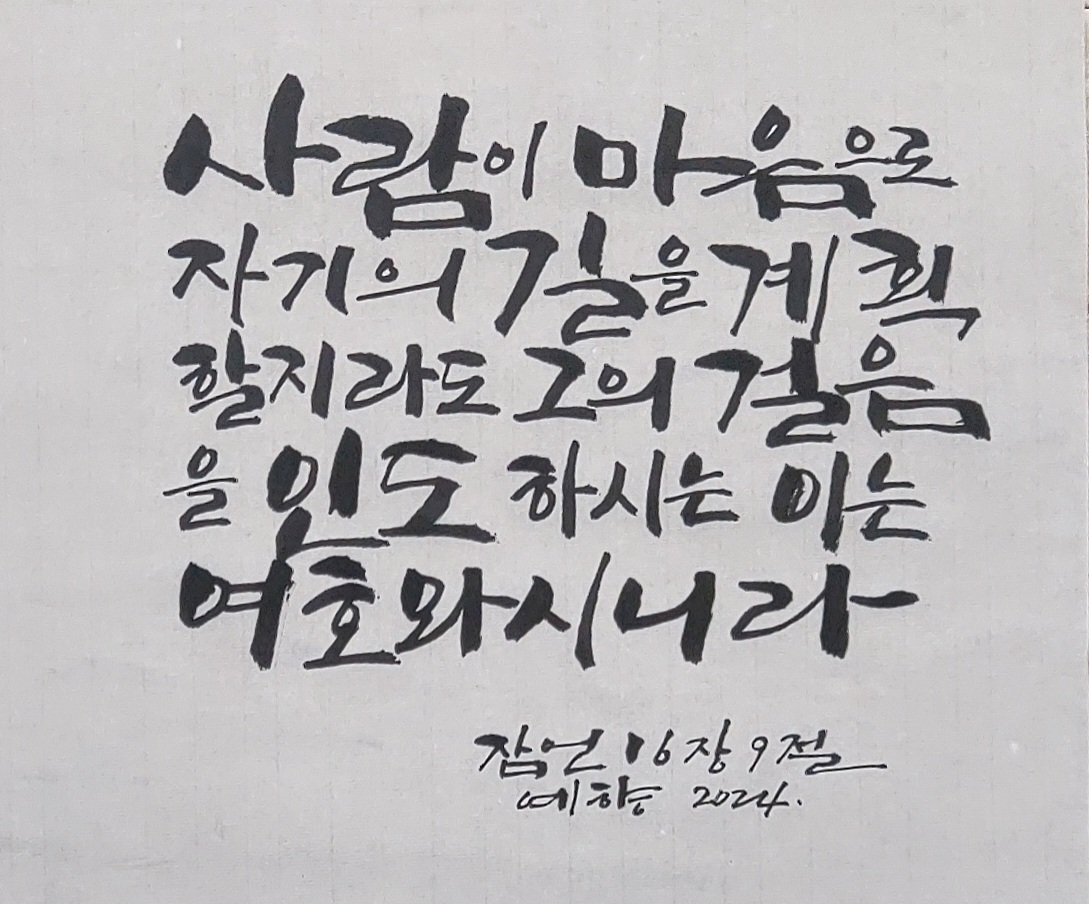 사람이 마음으로
자기의 길을 계획
할지라도 그의 걸음
을 인도 하시는 이는
여호와시니라
잠언 16장 9절
예향 2024.